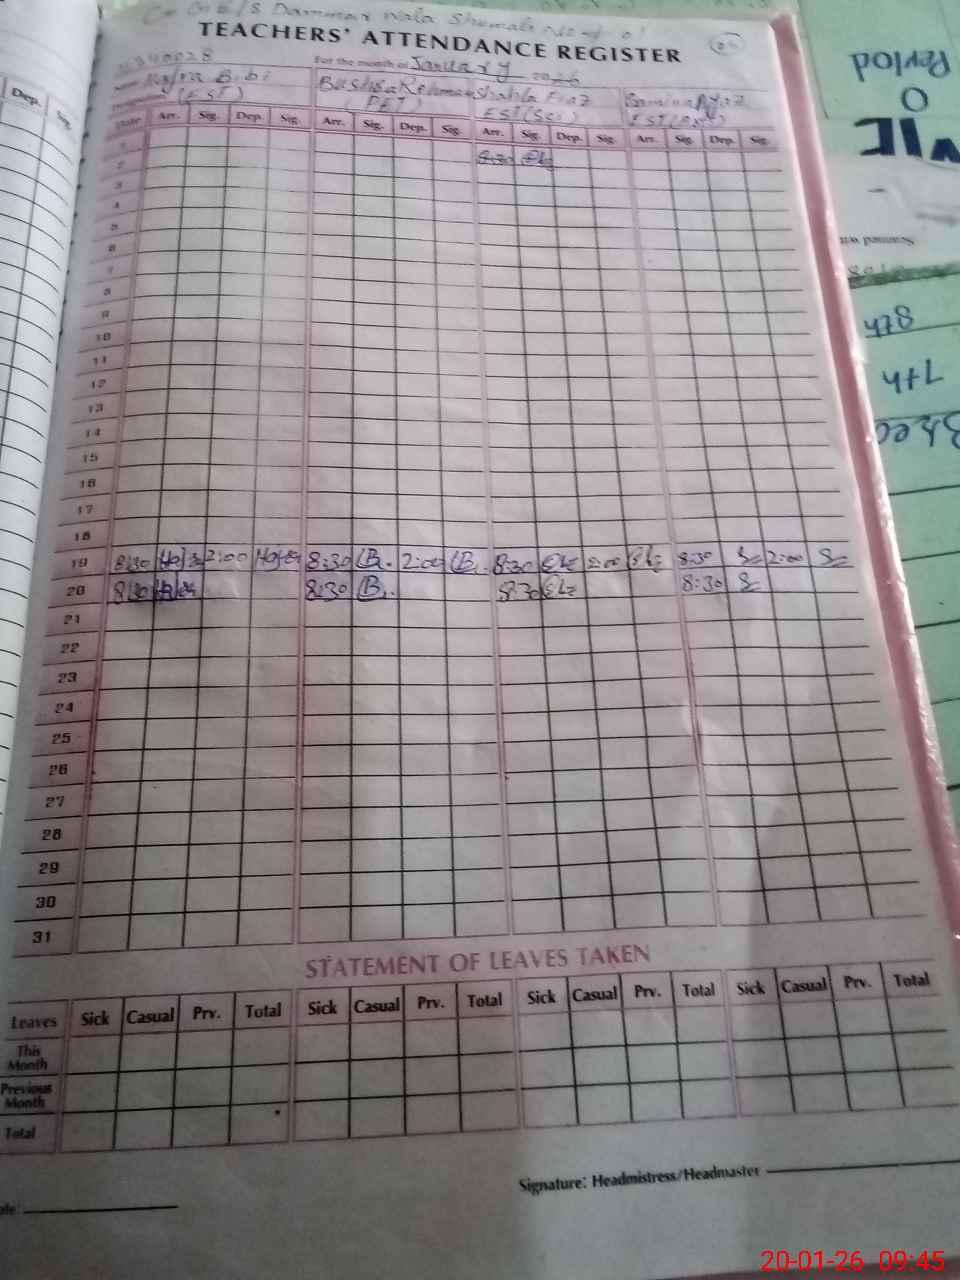 G G E/S Dammar wala Shumali No-1 01
TEACHERS' ATTENDANCE REGISTER
For the month of January 2026
Name Hajra Bibi Bushra Rehman Shahla Fiaz Samina Ayaz
(EST) (PET) EST(Sci) EST
Date Arr. Sig. Dep. Sig. Arr. Sig. Dep. Sig. Arr. Sig. Dep. Sig. Arr. Sig. Dep. Sig.
1
2 8:30
3
4
5
6
7
8
9
10
11
12
13
14
15
16
17
18
19 8:30 2:00 8:30 2:00 8:30 2:00 8:30 2:00
20 8:30 8:30 8:30 8:30
21
22
23
24
25
26
27
28
29
30
31
STATEMENT OF LEAVES TAKEN
Leaves Sick Casual Prv. Total Sick Casual Prv. Total Sick Casual Prv. Total Sick Casual Prv. Total
This Month
Previous Month
Total
Signature: Headmistress/Headmaster
Dep. Sig.
Period
0
8th
7th
20-01-26 09:45